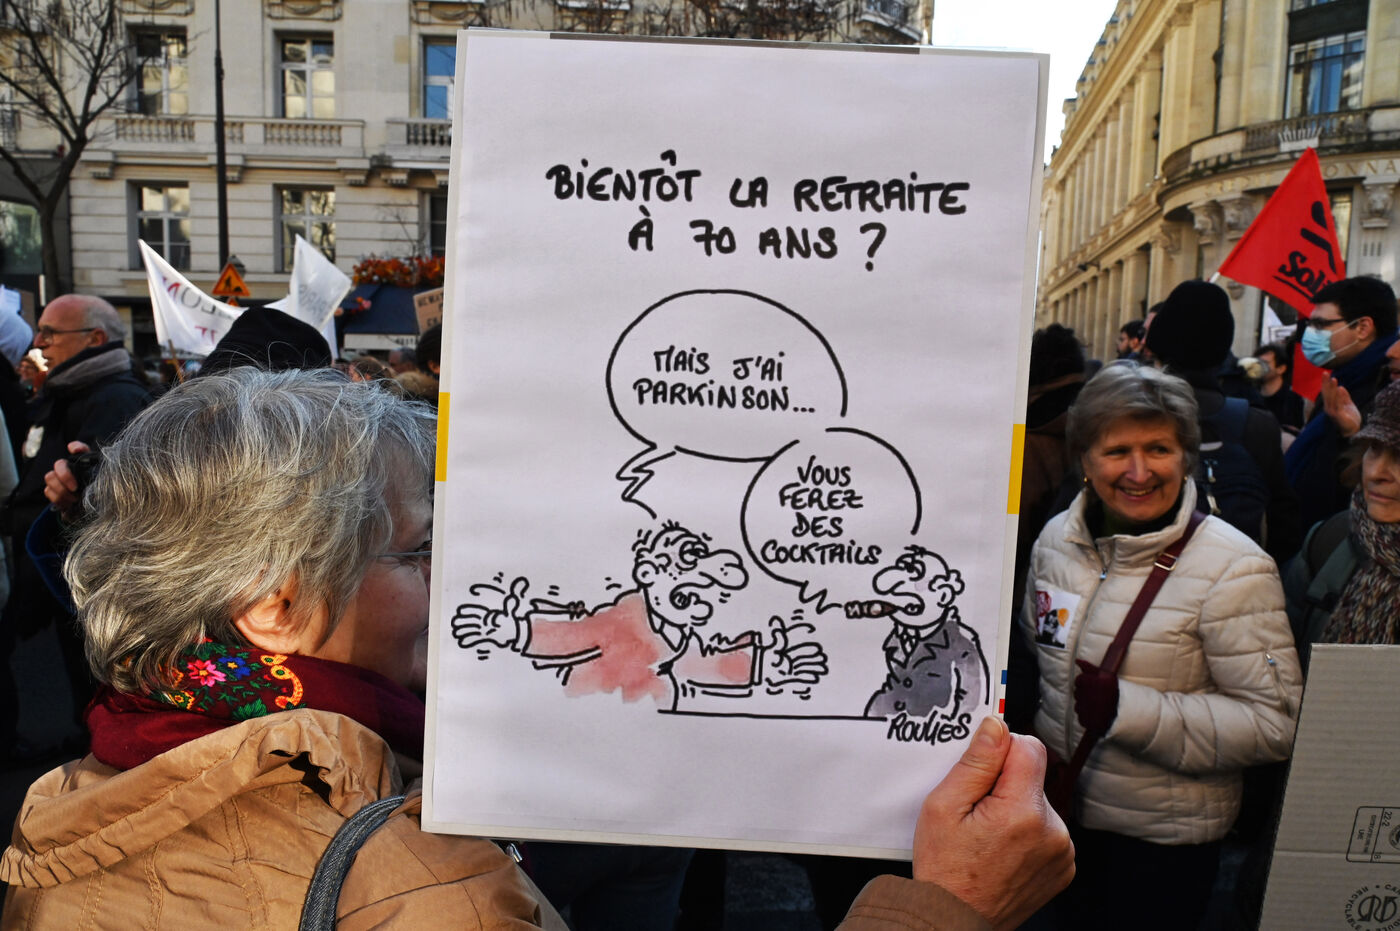 BIENTÔT LA RETRAITE
À 70 ANS ?
MAIS J'AI
PARKINSON...
VOUS
FEREZ
DES
COCKTAILS
ROUYÈS
22-2